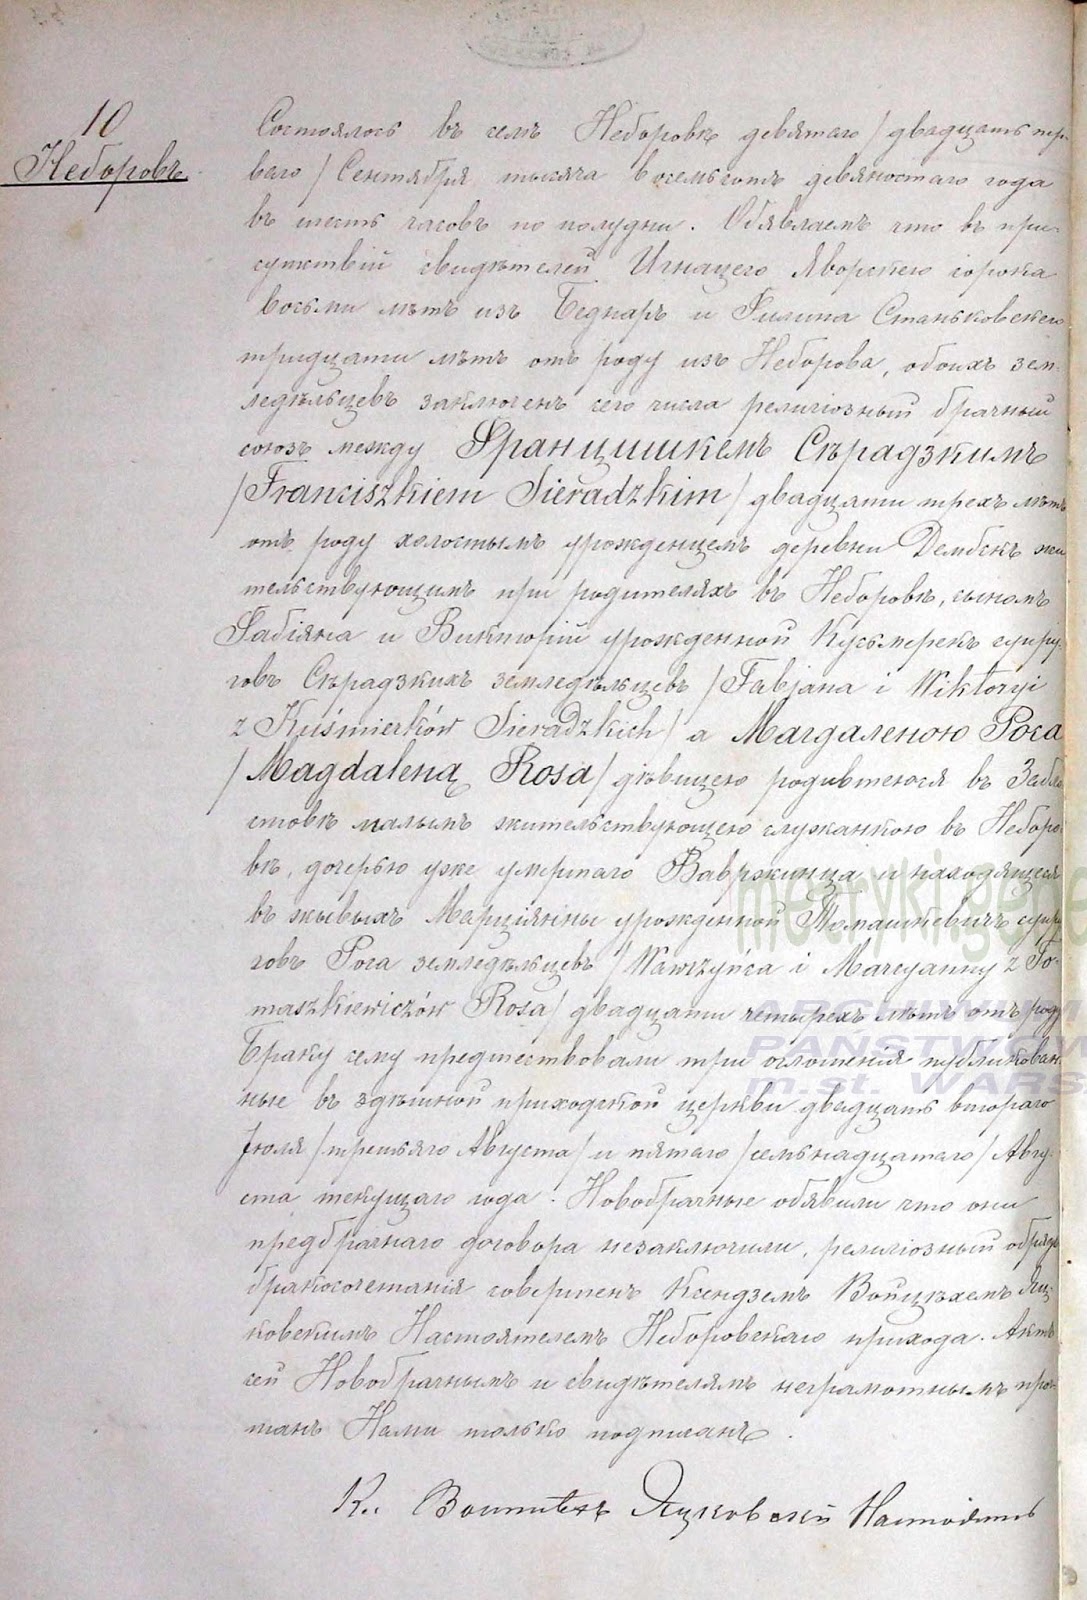 10
Неборовъ
Состоялось въ селѣ Неборовѣ девятаго / двадцать пер-
ваго / Сентября тысяча восемьсотъ девяностаго года
въ шесть часовъ по полудни. Объявляемъ что въ при-
сутствій свидѣтелей Игнацего Яворскего сорока
восьми лѣтъ изъ Беднаръ и Филипа Станьковскего
тридцати лѣтъ отъ роду изъ Неборова, обоихъ зем-
ледѣльцевъ заключенъ сего числа религіозный брачный
союзъ между Францишкемъ Сѣрадзкимъ
/ Franciszkiem Sieradzkim / двадцати трехъ лѣтъ
отъ роду холостымъ урожденцемъ деревни Дембскъ жи-
тельствующимъ при родителяхъ въ Неборовѣ, сыномъ
Фабіяна и Викторій урожденной Кусьмерекъ супру-
говъ Сѣрадзкихъ земледѣльцевъ / Fabjana i Wiktoryi
z Kuśmierków Sieradzkich / а Магдаленою Роса
/ Magdaleną Rosa / дѣвицею родившеюся въ
стовѣ маломъ жительствующею служанкою въ Неборо-
вѣ, дочерью уже умершаго Вавржинца и находящейся
въ живыхъ Марціянны урожденной Томашкевичъ супру-
говъ Роса земледѣльцевъ / Wawrzyńca i Marcyanny z To-
maszkiewiczów Rosa / двадцати четырехъ лѣтъ отъ роду
Браку сему предшествовали три оглошенія публикован-
ные въ здѣшной приходской церкви двадцать втораго
Іюля / третьяго Августа / и пятаго / семьнадцатаго / Авгу-
ста текущаго года. Новобрачные объявили что они
предбрачнаго договора незаключили, религіозный обрядъ
бракосочетанія совершенъ Ксендземъ Войцѣхемъ Яц-
ковскимъ Настоятелемъ Неборовскаго прихода. Актъ
сей Новобрачнымъ и свидѣтелямъ неграмотнымъ проч-
танъ Нами только подписанъ.
Кс. Войтѣхъ Яцковскій Настоятель
metryki.gene
ARCHIWUM
PAŃSTWOW
m.st. WARS